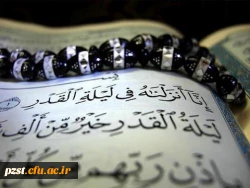 إِنَّا أَنزَلْنَٰهُ فِي لَيْلَةِ الْقَدْرِ
لَيْلَةُ الْقَدْرِ خَيْرٌ مِّنْ أَلْفِ
بِإِذْنِ رَبِّهِم
pzst.cfu.ac.ir